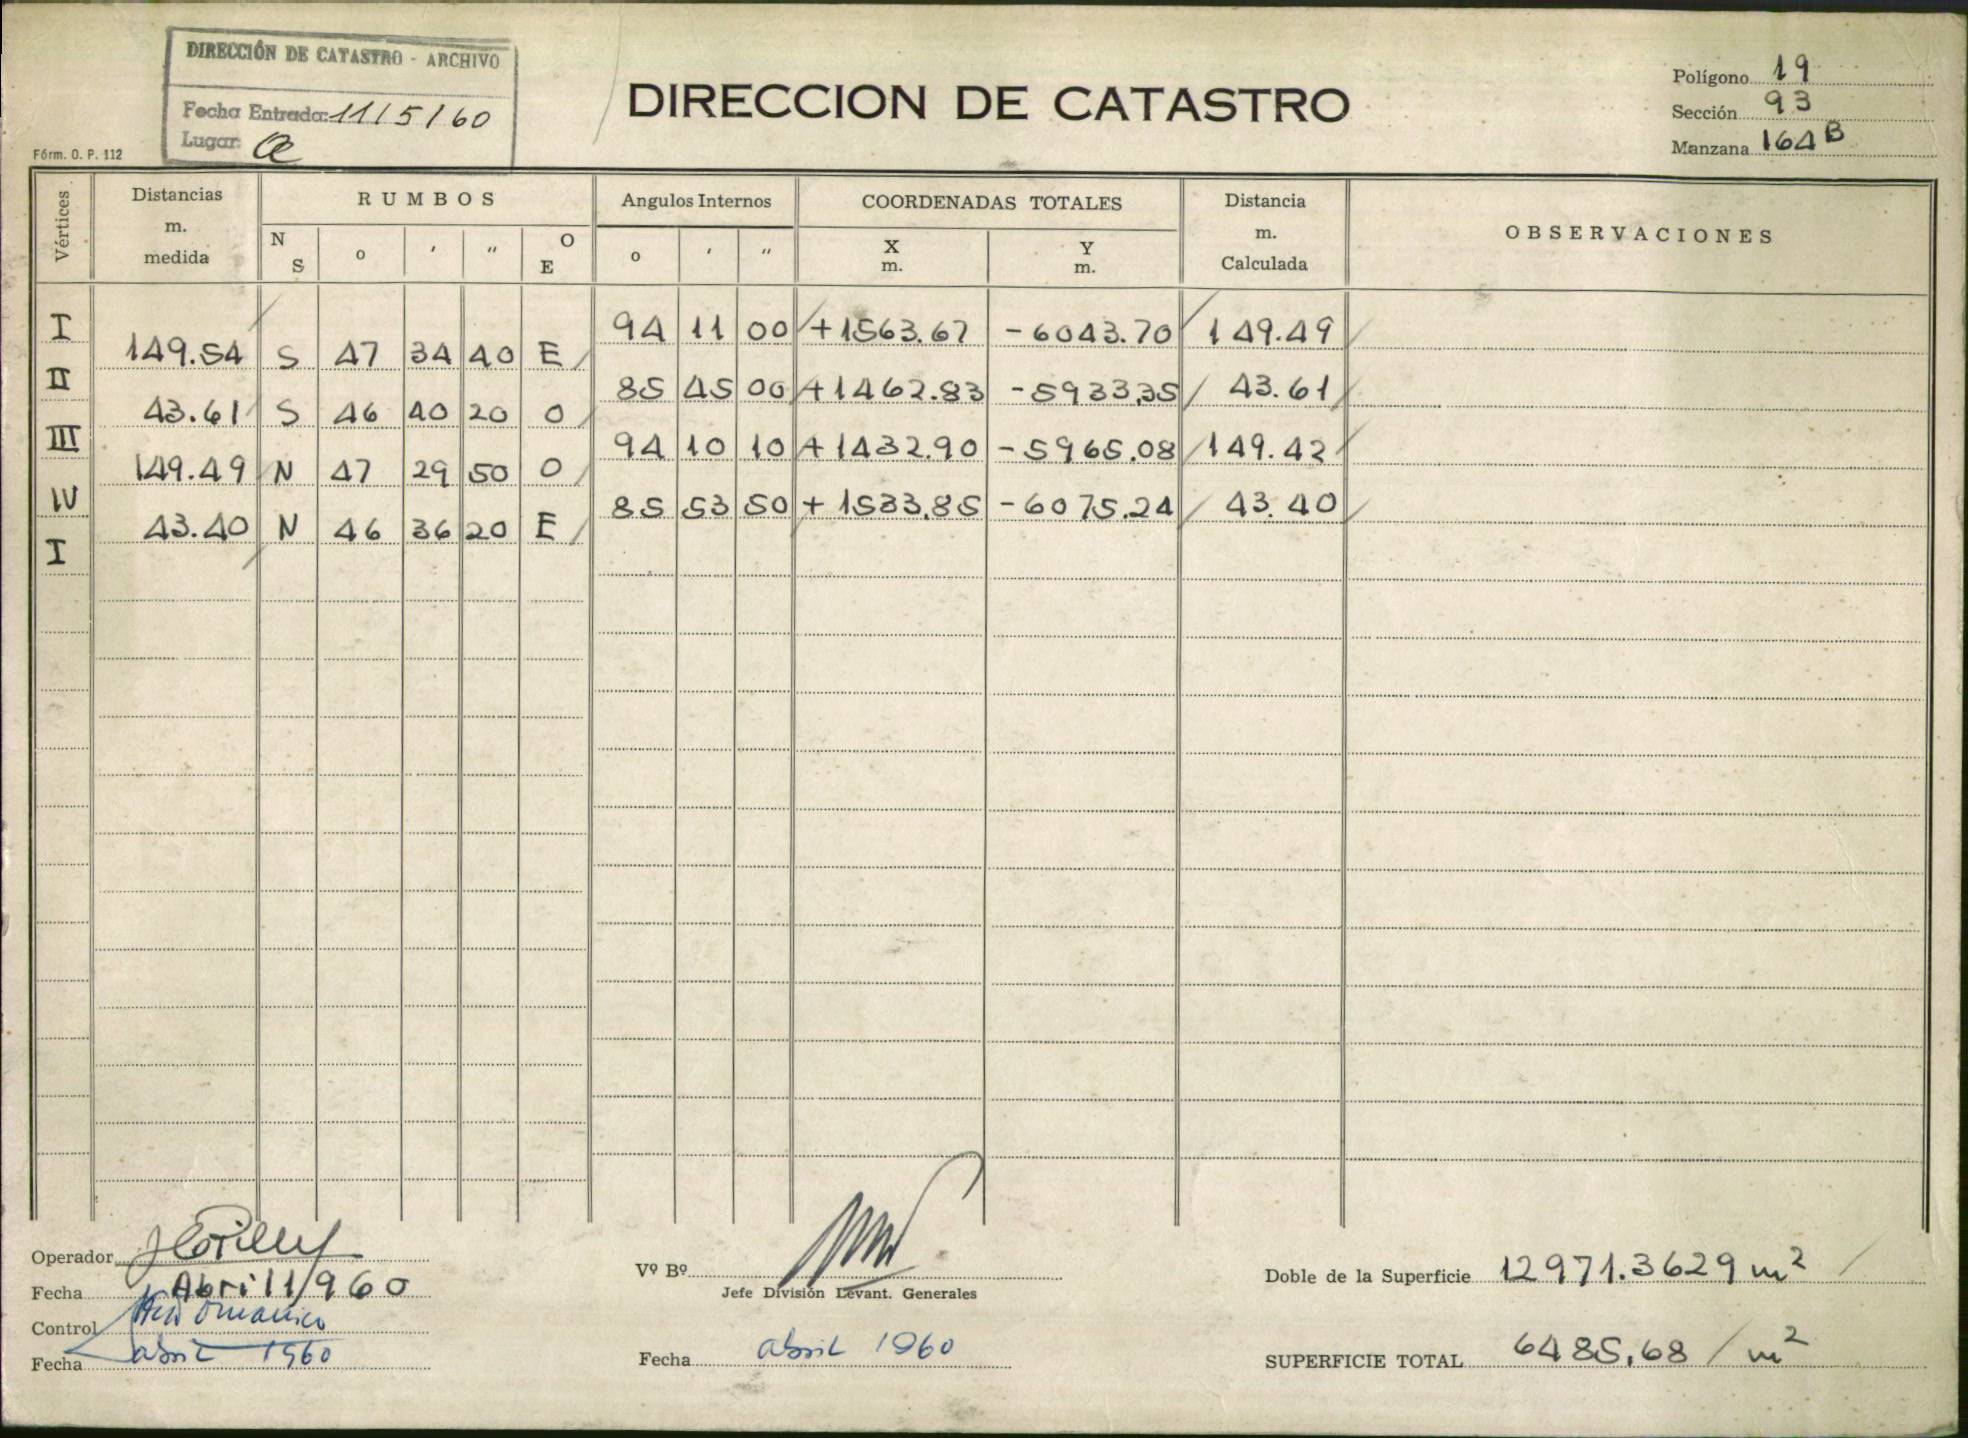 DIRECCIÓN DE CATASTRO - ARCHIVO
Fecha Entrada: 11/5/60
Lugar:
Fórm. O. P. 112
DIRECCION DE CATASTRO
Polígono 19
Sección 93
Manzana 164B
Vértices Distancias m. medida RUMBOS Angulos Internos COORDENADAS TOTALES Distancia m. Calculada OBSERVACIONES
N S o ' " O E o ' " X m. Y m.
I 94 11 00 +1563.67 -6043.70 149.49
149.54 S 47 34 40 E
II 85 45 00 +1462.83 -5933.35 43.61
43.61 S 46 40 20 O
III 94 10 10 +1432.90 -5965.08 149.42
149.49 N 47 29 50 O
IV 85 53 50 +1533.85 -6075.24 43.40
43.40 N 46 36 20 E
I
Operador
Fecha Abril 1/960
Control
Fecha abril 1960
Vº Bº
Jefe División Levant. Generales
Fecha abril 1960
Doble de la Superficie 12971.3629 m²
SUPERFICIE TOTAL 6485.68 m²